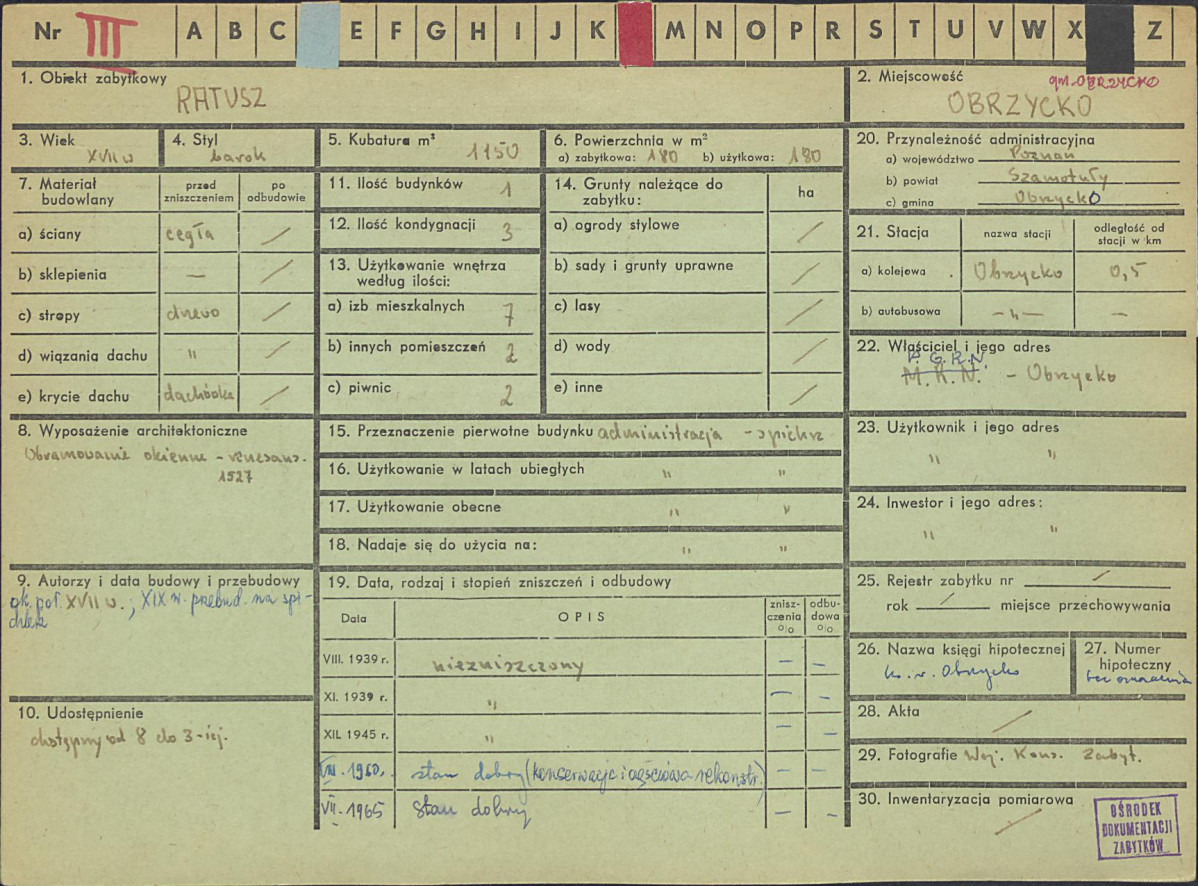 Nr III A B C E F G H I J K M N O P R S T U V W X Z
1. Obiekt zabytkowy
RATUSZ
2. Miejscowość
gm. OBRZYCKO
OBRZYCKO
3. Wiek
XVII w
4. Styl
barok
5. Kubatura m³
1150
6. Powierzchnia w m²
a) zabytkowa: 180 b) użytkowa: 180
7. Materiał budowlany
przed zniszczeniem
po odbudowie
a) ściany cegła /
b) sklepienia — /
c) stropy drzewo /
d) wiązania dachu " /
e) krycie dachu dachówka /
8. Wyposażenie architektoniczne
Obramowanie okienne - renesans.
1527
9. Autorzy i data budowy i przebudowy
ok. poł. XVII w.; XIX w. przebud. na spi-
chlerz
10. Udostępnienie
dostępny od 8 do 3-iej.
11. Ilość budynków 1
12. Ilość kondygnacji 3
13. Użytkowanie wnętrza
według ilości:
a) izb mieszkalnych 7
b) innych pomieszczeń 2
c) piwnic 2
14. Grunty należące do
zabytku:
ha
a) ogrody stylowe /
b) sady i grunty uprawne /
c) lasy /
d) wody /
e) inne /
15. Przeznaczenie pierwotne budynku administracja - spichrz
16. Użytkowanie w latach ubiegłych " "
17. Użytkowanie obecne " "
18. Nadaje się do użycia na: " "
19. Data, rodzaj i stopień zniszczeń i odbudowy
Data
OPIS
znisz-
czenia
%
odbu-
dowa
%
VIII. 1939 r. niezniszczony — —
XI. 1939 r. " — —
XII. 1945 r. " — —
1960. stan dobry (konserwacja i częściowa rekonstr.) — —
VII. 1965 stan dobry — —
20. Przynależność administracyjna
a) województwo Poznań
b) powiat Szamotuły
c) gmina Obrzycko
21. Stacja
nazwa stacji
odległość od
stacji w km
a) kolejowa Obrzycko 0,5
b) autobusowa —"— —
22. Właściciel i jego adres
P. G. R. N.
M. R. N. - Obrzycko
23. Użytkownik i jego adres
" "
24. Inwestor i jego adres:
" "
25. Rejestr zabytku nr /
rok / miejsce przechowywania
26. Nazwa księgi hipotecznej
ks. w. Obrzycko
27. Numer
hipoteczny
bez oznaczenia
28. Akta /
29. Fotografie Woj. Kons. Zabyt.
30. Inwentaryzacja pomiarowa
/
OŚRODEK
DOKUMENTACJI
ZABYTKÓW